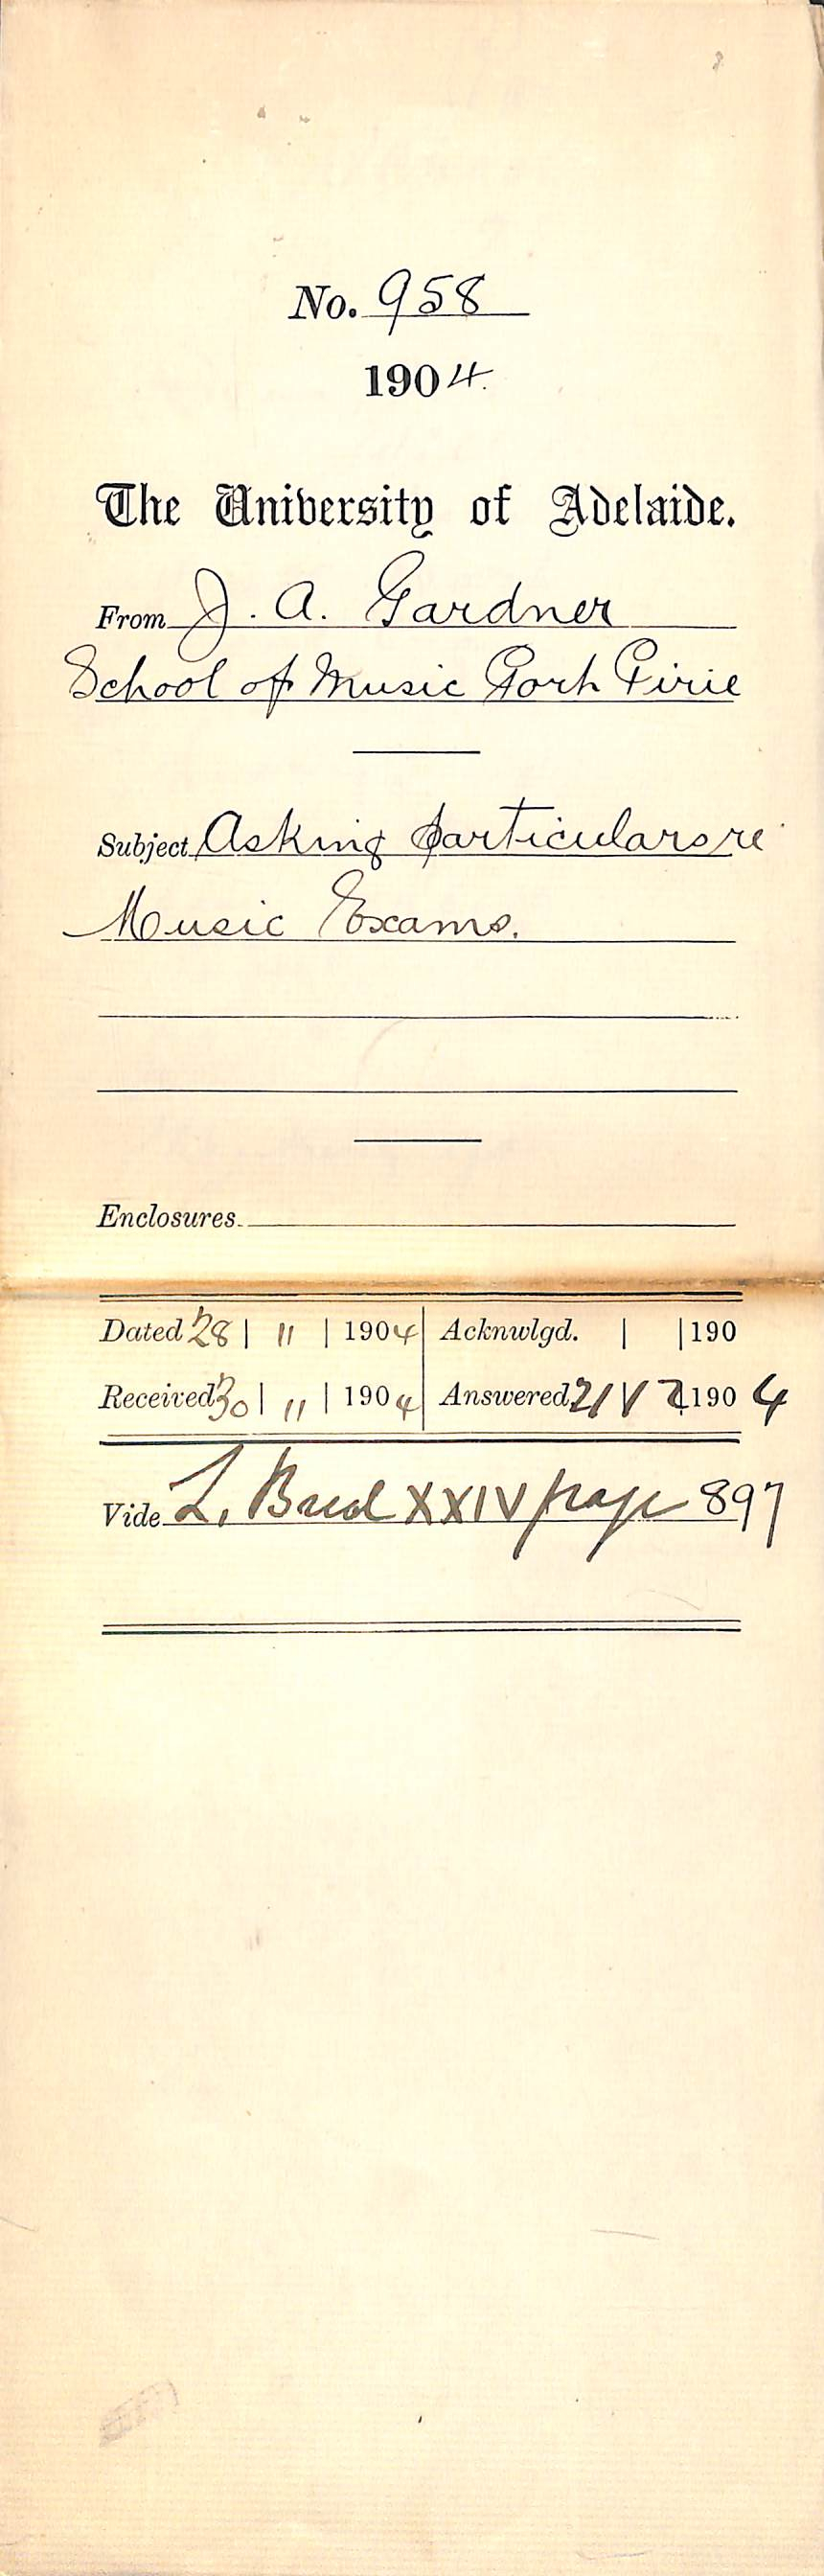 No. 958
1904.
The University of Adelaide.
From J. A. Gardner
School of Music Port Pirie
Subject Asking particulars re
Music Exams.
Enclosures.
Dated 28 | 11 | 1904 Acknwlgd. | | 190
Received 30 | 11 | 1904 Answered 1904
Vide L. XXIV page 897